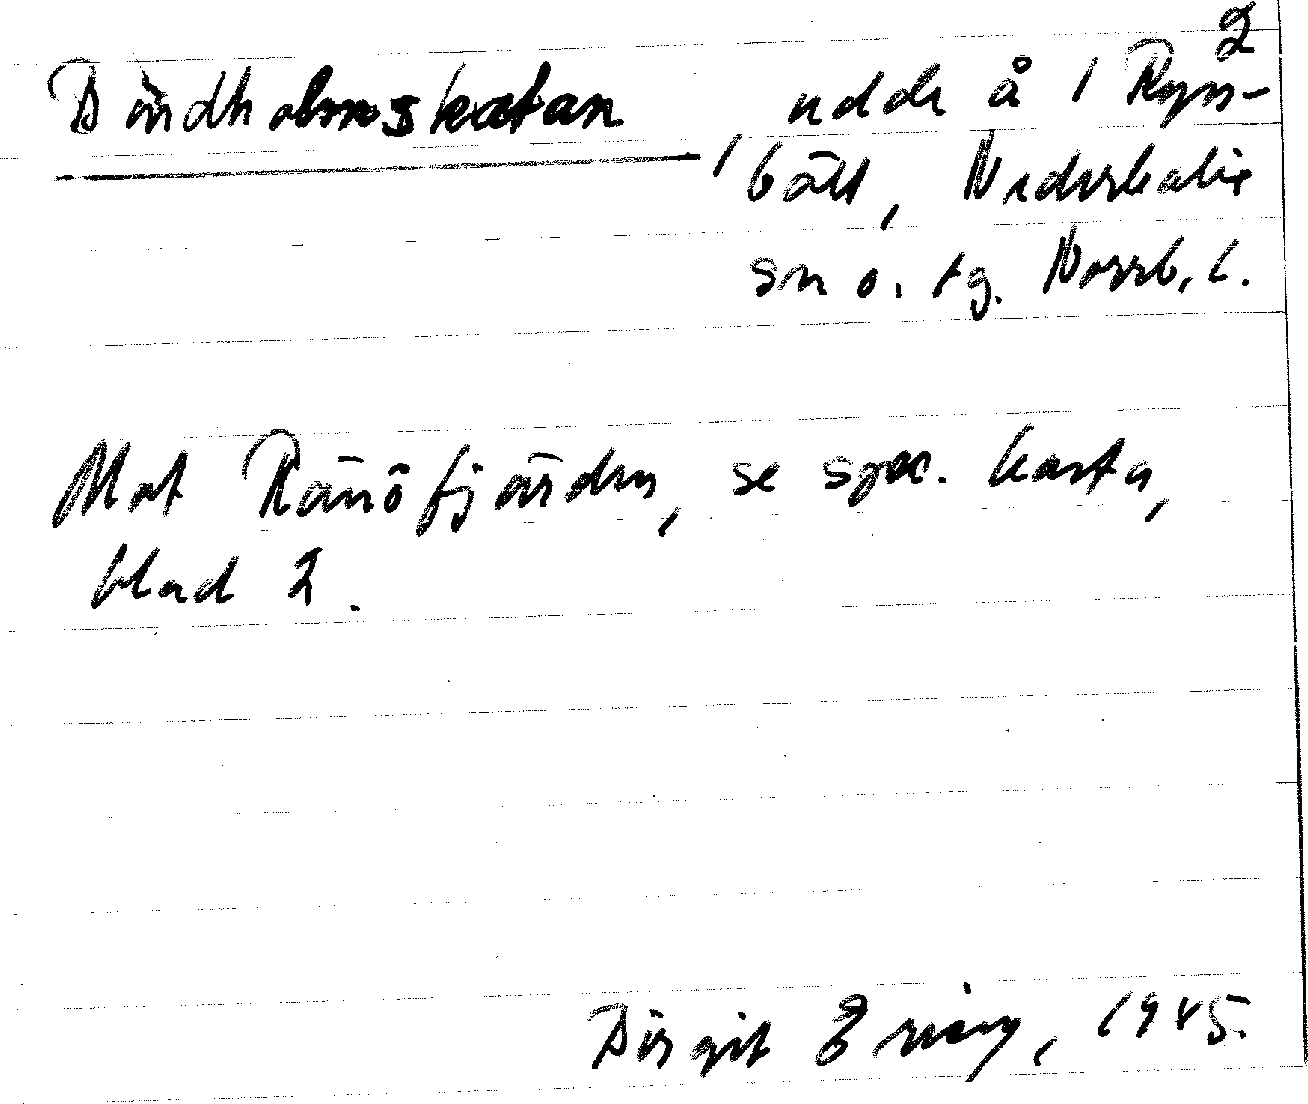 2
Bändholmskatan, udde å 1 Ryss-
bält, Nederkalix
sn o. tg. Norrb. l.
Mot Rånöfjärden, se spec. karta,
blad 2.
Birgit Ering, 1945.